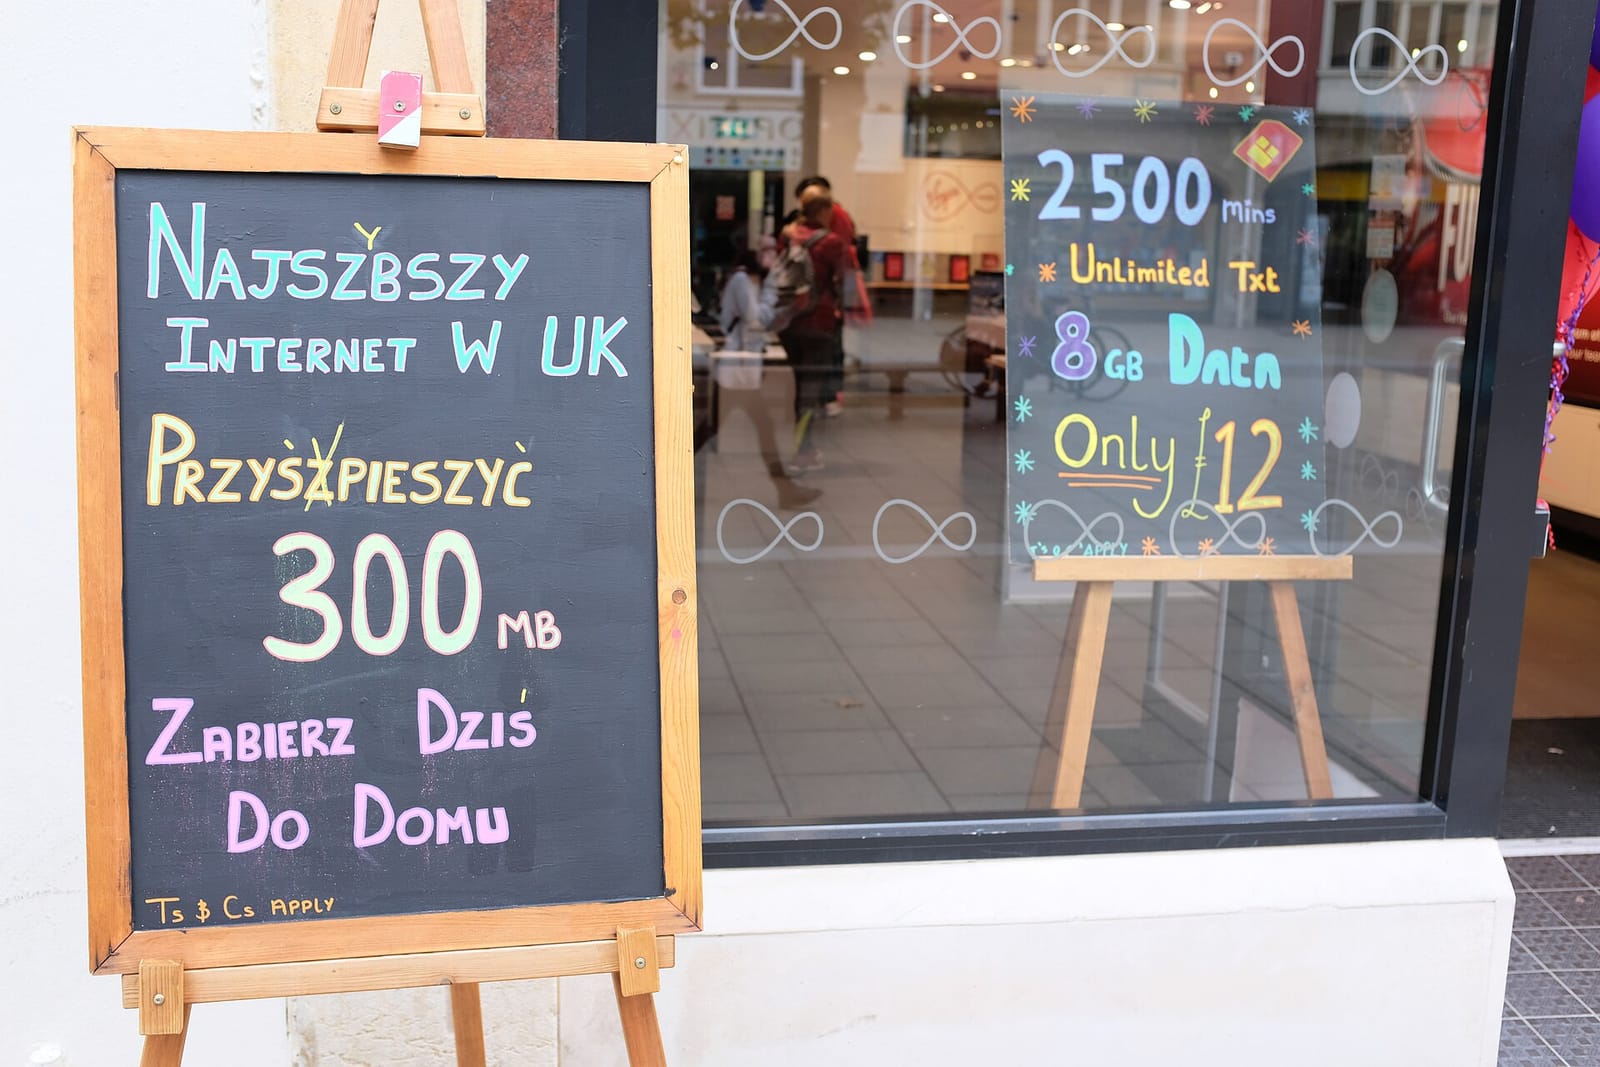 NAJSZYBSZY
INTERNET W UK
PRZYŚPIESZYĆ
300 MB
ZABIERZ DZIŚ
DO DOMU
Ts & Cs APPLY
2500 mins
UnLimited Txt
8 GB Data
Only £12
T's & C's APPLY